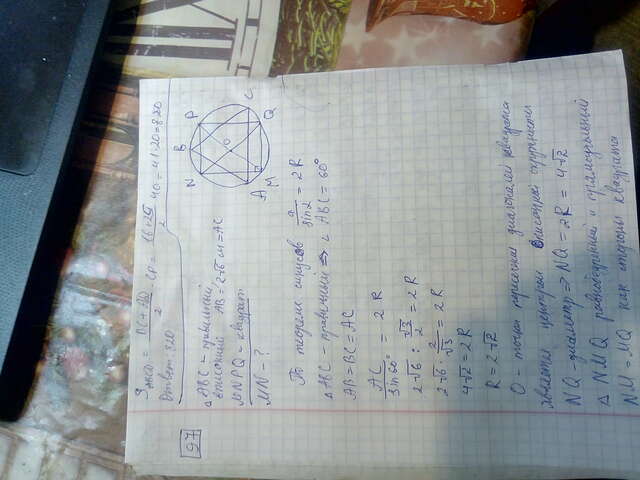 S ABCD = (BC + AD)/2 · CP = (16 + 25)/2 · 40 = 41 · 20 = 820
Ответ: 820
97
△ ABC – правильный,
вписанный AB = 2√6 см = AC
MNPQ – квадрат
MN – ?
N B P C
O
A M Q
По теореме синусов a/sin α = 2R
△ ABC – правильный ⇒ ∠ ABC = 60°
AB = BC = AC
AC/sin 60° = 2R
2√6 : √3/2 = 2R
2√6 · 2/√3 = 2R
4√2 = 2R
R = 2√2
O – точка пересечения диагоналей квадрата
является центром описанной окружности
NQ – диаметр ⇒ NQ = 2R = 4√2
△ NMQ равнобедренный и прямоугольный
NM = MQ как стороны квадрата